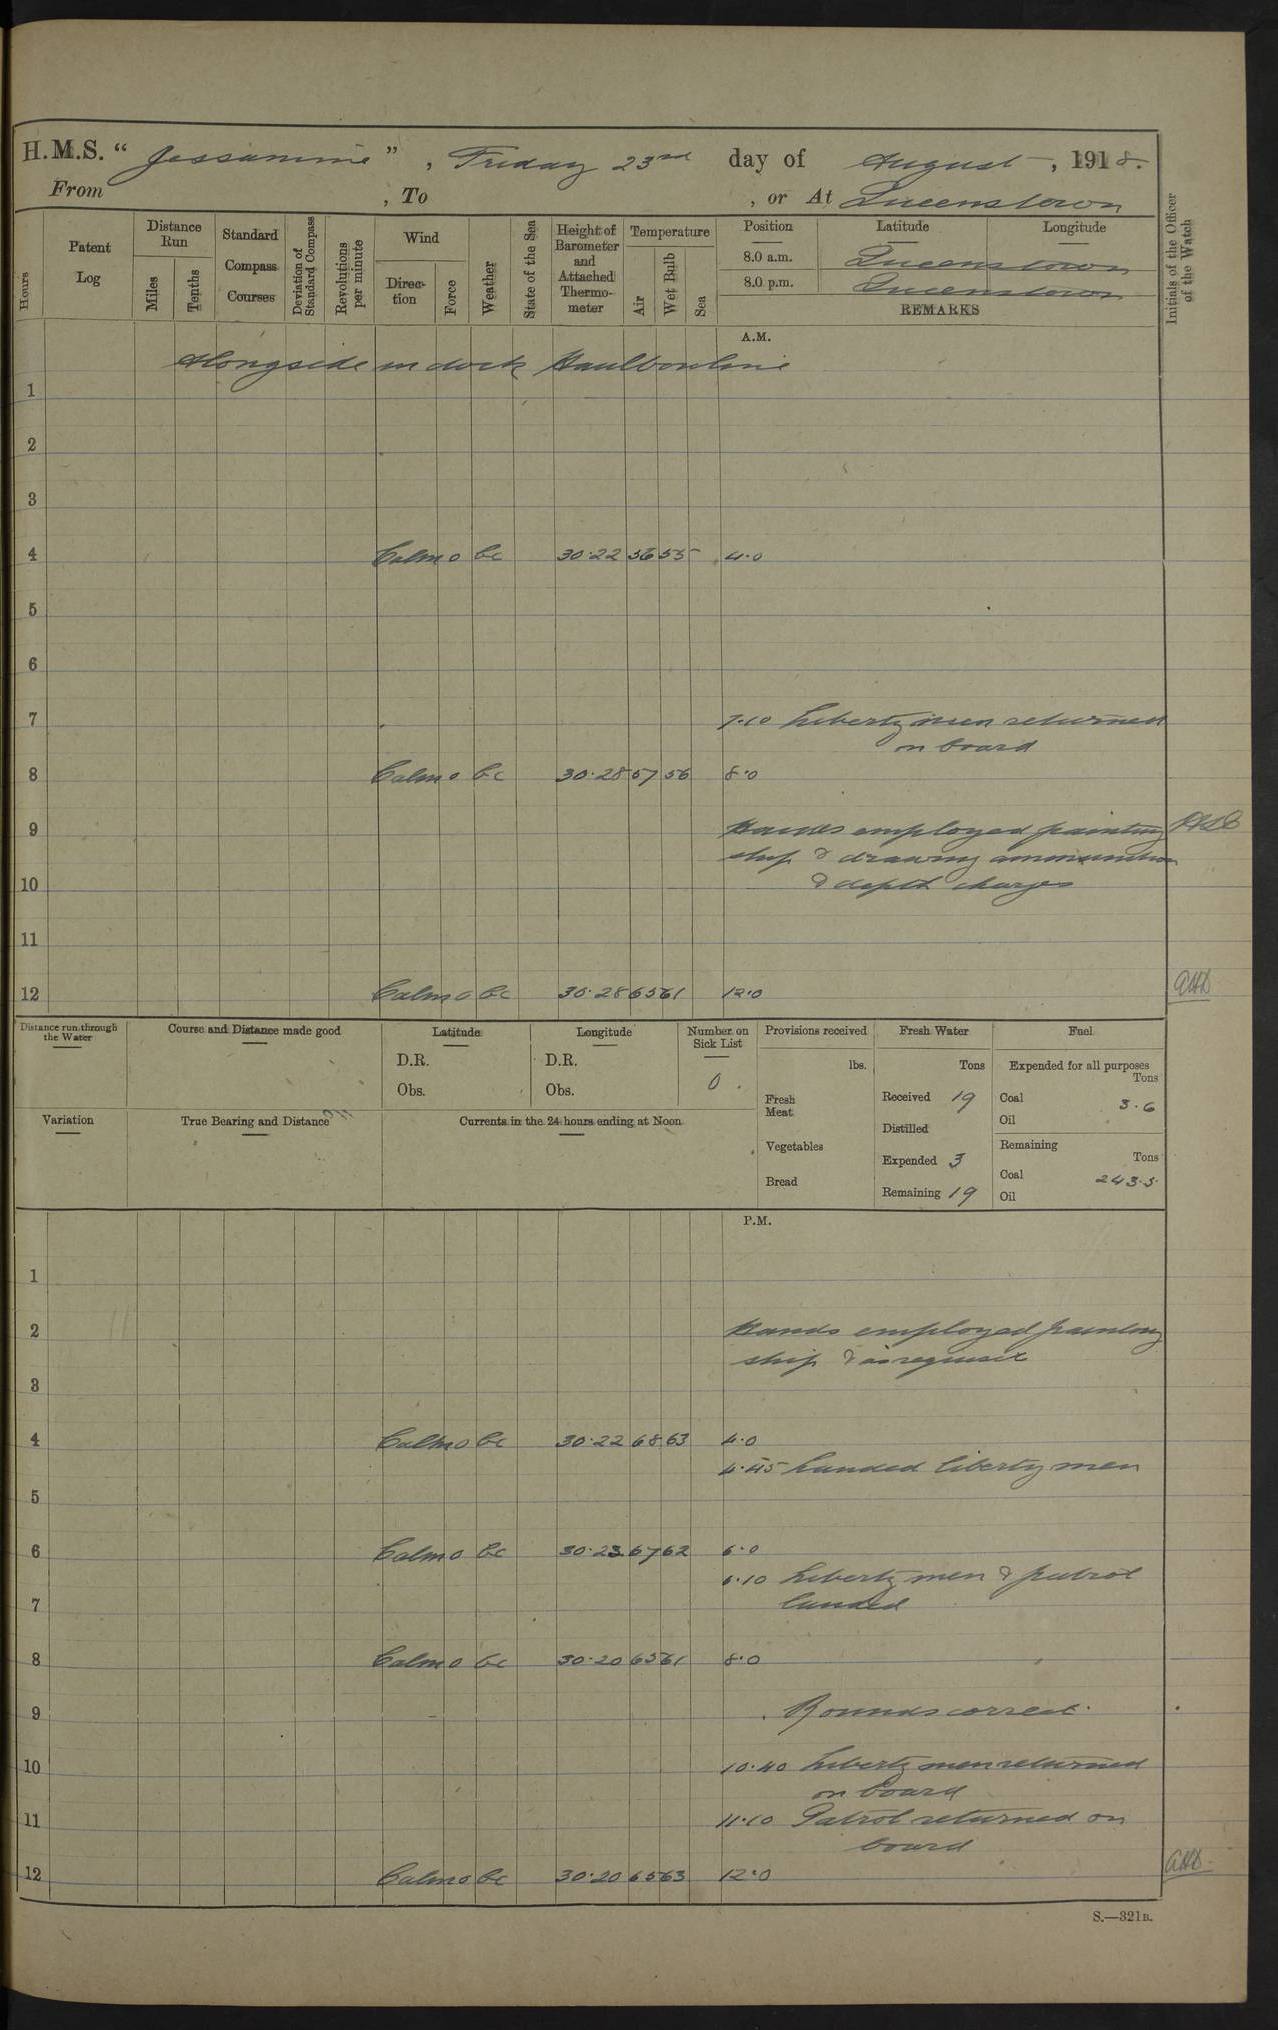 H.M.S. “ Jessamine ” , Friday 23rd day of August , 1918.
From , To , or At Queenstown
Hours
Patent Log
Distance Run
Miles
Tenths
Standard Compass Courses
Deviation of Standard Compass
Revolutions per minute
Wind
Direction
Force
Weather
State of the Sea
Height of Barometer and Attached Thermometer
Temperature
Air
Wet Bulb
Sea
Position
Latitude
Longitude
8.0 a.m. Queenstown
8.0 p.m. Queenstown
REMARKS
Initials of the Officer of the Watch
A.M.
Alongside in dock Haulbowline
1
2
3
4 Calm 0 bc 30.22 56 55 4.0
5
6
7 7.10 Liberty men returned
on board
8 Calm 0 bc 30.28 57 56 8.0
9 Hands employed painting
ship & drawing ammunition
10 & depth charges
11
12 Calm 0 bc 30.28 65 61 12.0
Distance run through the Water
Course and Distance made good
Latitude
D.R.
Obs.
Longitude
D.R.
Obs.
Number on Sick List
0
Provisions received
lbs.
Fresh Meat
Vegetables
Bread
Fresh Water
Tons
Received 19
Distilled
Expended 3
Remaining 19
Fuel
Expended for all purposes
Tons
Coal 3.6
Oil
Remaining
Tons
Coal 243.5
Oil
Variation
True Bearing and Distance
Currents in the 24 hours ending at Noon
P.M.
1
2 Hands employed painting
ship & as requisite
3
4 Calm 0 bc 30.22 68 63 4.0
4.45 Landed liberty men
5
6 Calm 0 bc 30.23 67 62 6.0
6.10 Liberty men & patrol
7 landed
8 Calm 0 bc 30.20 65 61 8.0
9 Rounds correct.
10 10.40 Liberty men returned
on board
11 11.10 Patrol returned on
board
12 Calm 0 bc 30.20 65 63 12.0
S.—321B.